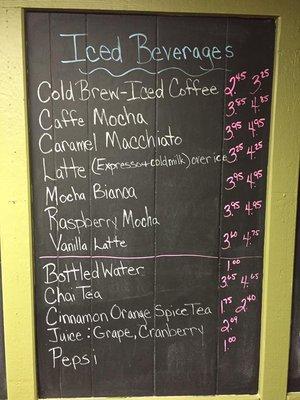 Iced Beverages
Cold Brew-Iced Coffee 2.45 3.25
Caffe Mocha 3.85 4.85
Caramel Macchiato 3.95 4.95
Latte (Expresso+coldmilk) over ice 3.25 4.25
Mocha Bianca 3.95 4.95
Raspberry Mocha 3.95 4.95
Vanilla Latte 3.60 4.75
Bottled Water 1.00
Chai Tea 3.65 4.65
Cinnamon Orange Spice Tea 1.75 2.40
Juice: Grape, Cranberry 2.09
Pepsi 1.00